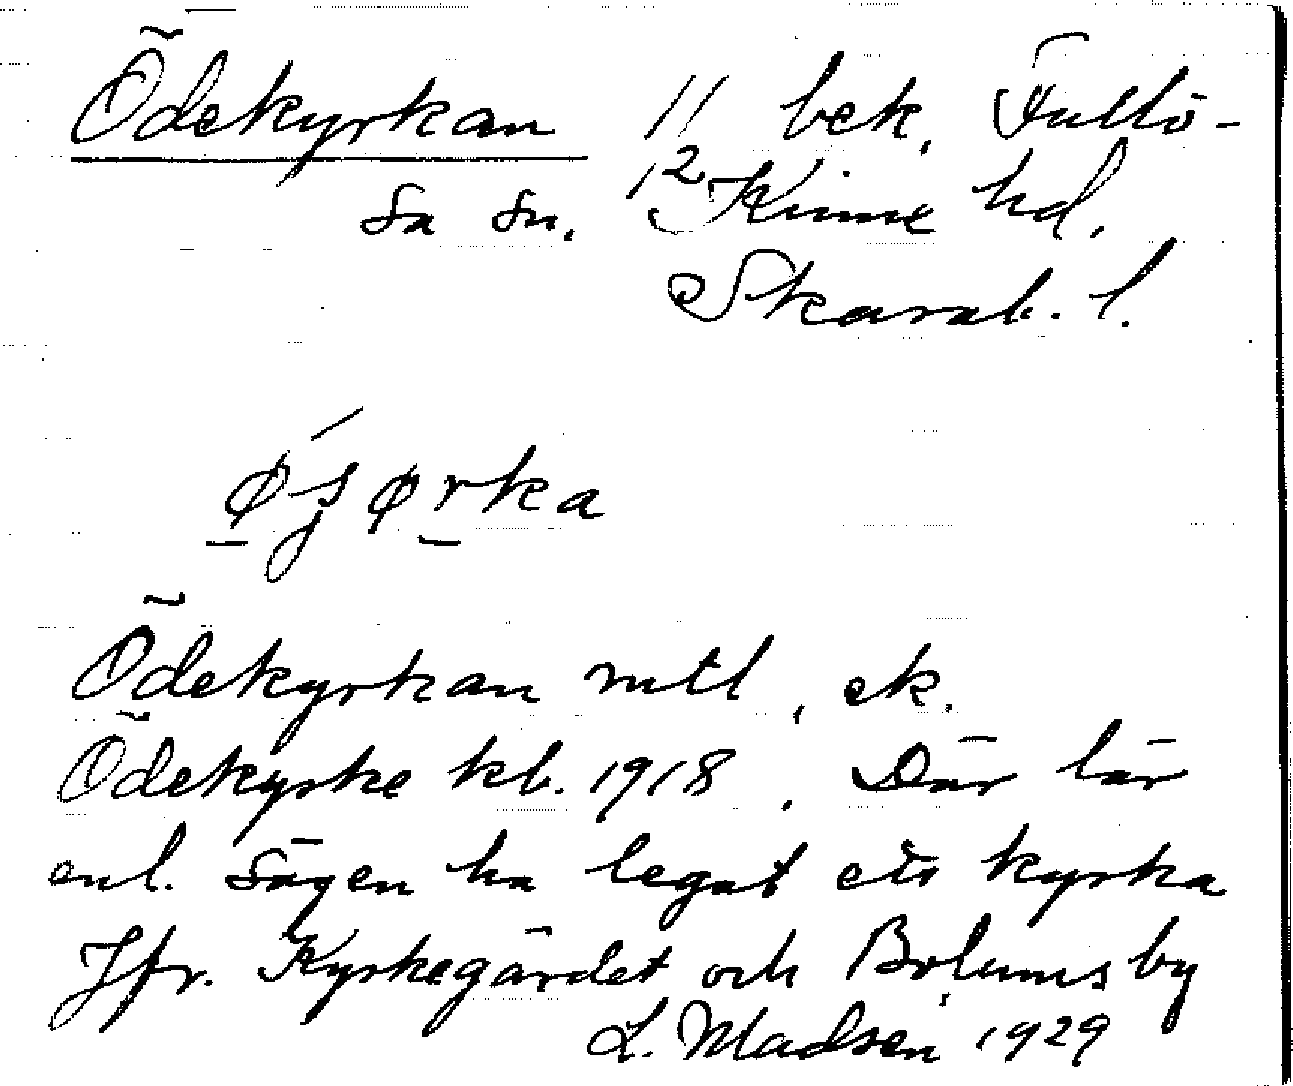 Ödekyrkan 11 bek. Fullö-
sa sn. 12 Kinne hd.
Skarab. l.
ǿʒørka
Ödekyrkan mtl, ek.
Ödekyrke kb. 1918. Där lär
enl. sägen ha legat en kyrka
Jfr. Kyrkegärdet och Bolums by
L. Madsen 1929